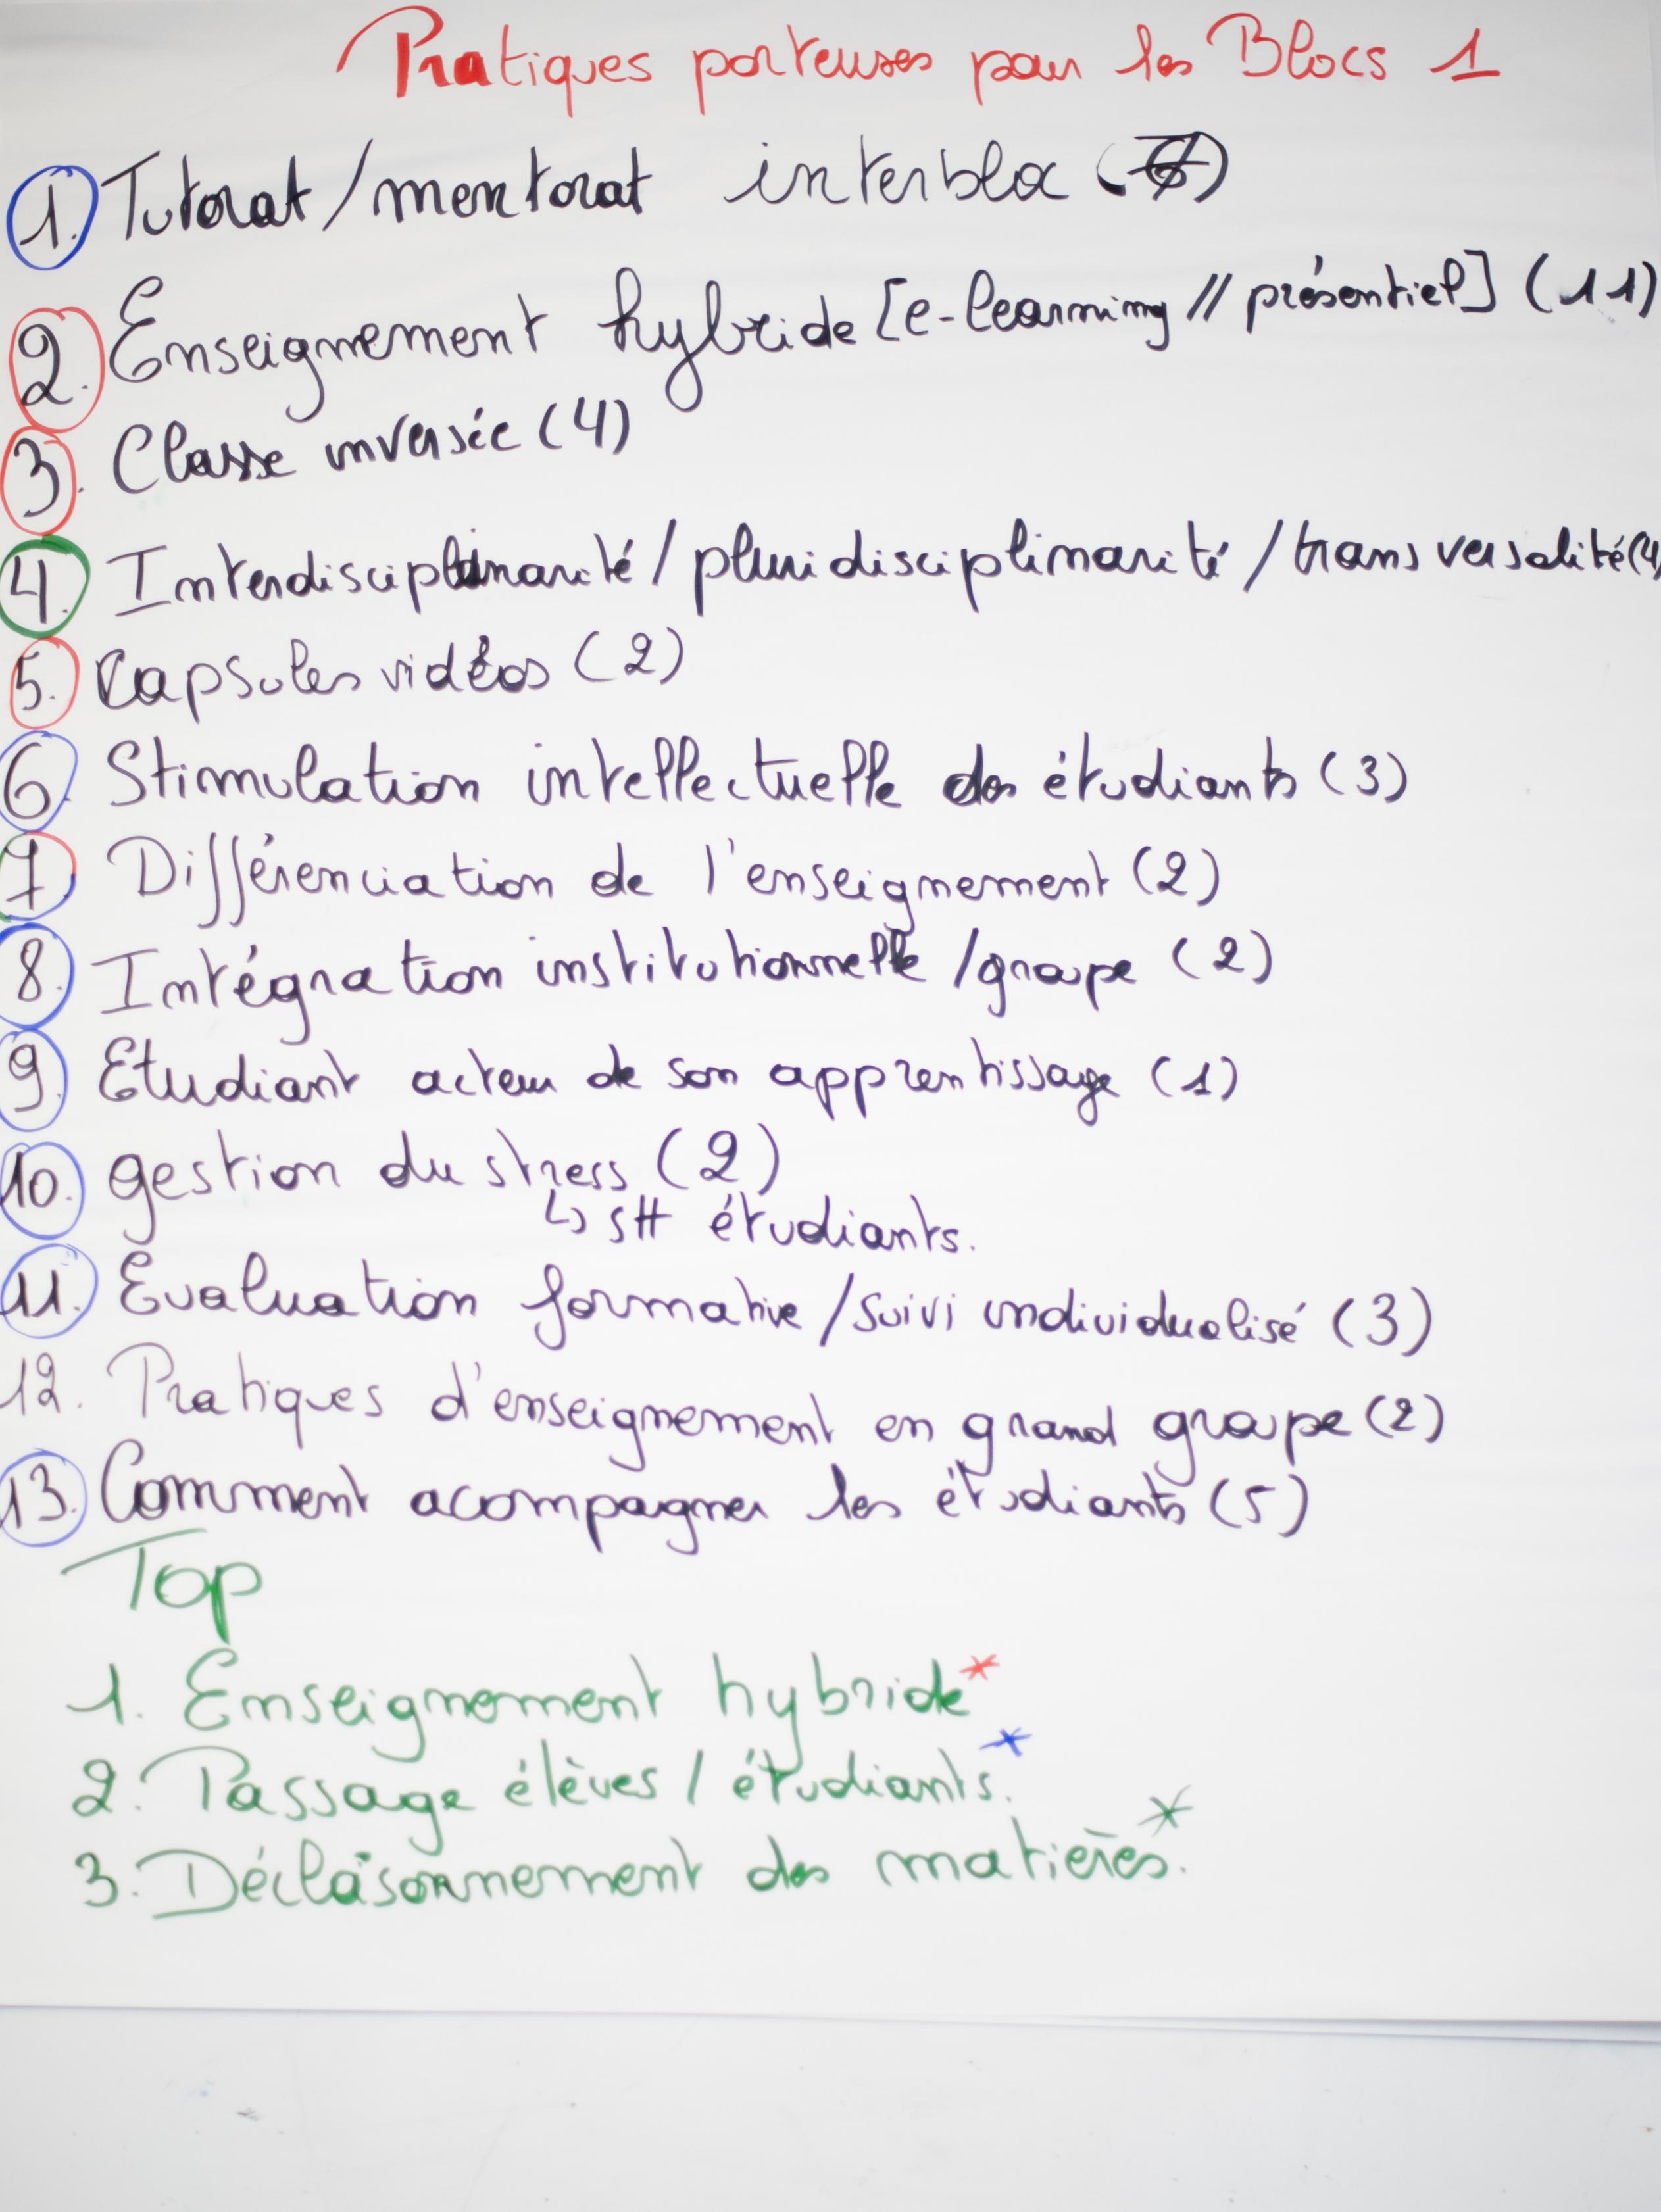 Pratiques porteuses pour les Blocs 1
1. Tutorat/mentorat interbloc
2. Enseignement hybride [e-learning // présentiel] (11)
3. Classe inversée (4)
4. Interdisciplinarité / pluridisciplinarité / transversalité (4)
5. Capsules vidéos (2)
6. Stimulation intellectuelle des étudiants (3)
7 Différenciation de l'enseignement (2)
8. Intégration institutionnelle /groupe (2)
9. Etudiant acteur de son apprentissage (1)
10. gestion du stress (2)
↳ étudiants.
11. Evaluation formative /suivi individualisé (3)
12. Pratiques d'enseignement en grand groupe (2)
13. Comment acompagner les étudiants (5)
Top
1. Enseignement hybride*
2. Passage élèves / étudiants.*
3. Décloisonnement des matières.*